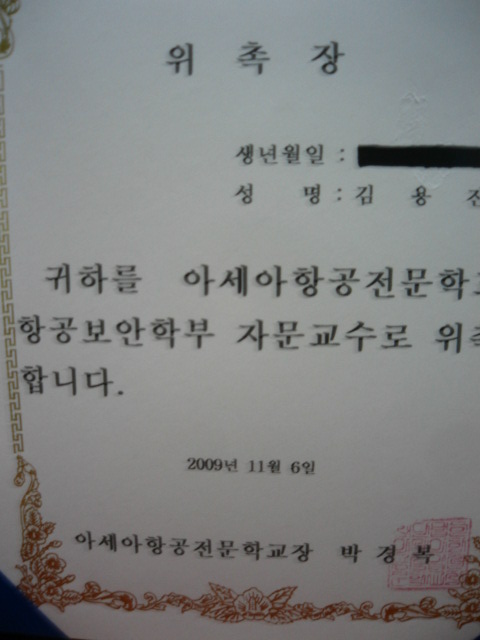 위 촉 장
생년월일 :
성 명 : 김 용 진
귀하를 아세아항공전문학교
항공보안학부 자문교수로 위촉
합니다.
2009년 11월 6일
아세아항공전문학교장 박 경 복